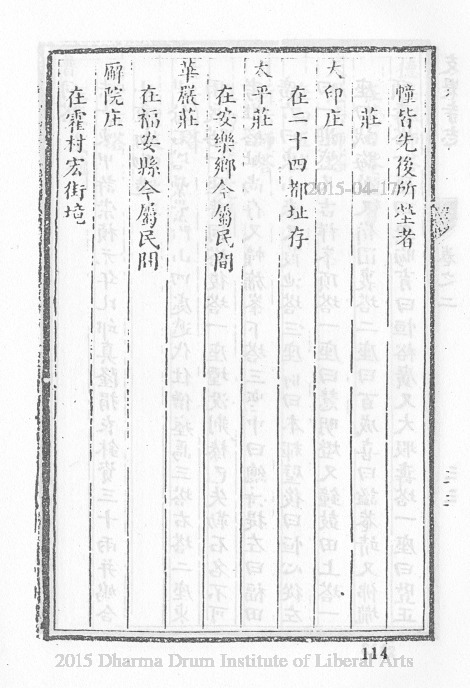 幢皆先後所塋者
莊
大印庄
在二十四都址存
太平莊
在安樂鄉今屬民間
華嚴莊
在福安縣今屬民間
廨院庄
在霍村宏街境
114
2015-04-17
2015 Dharma Drum Institute of Liberal Arts